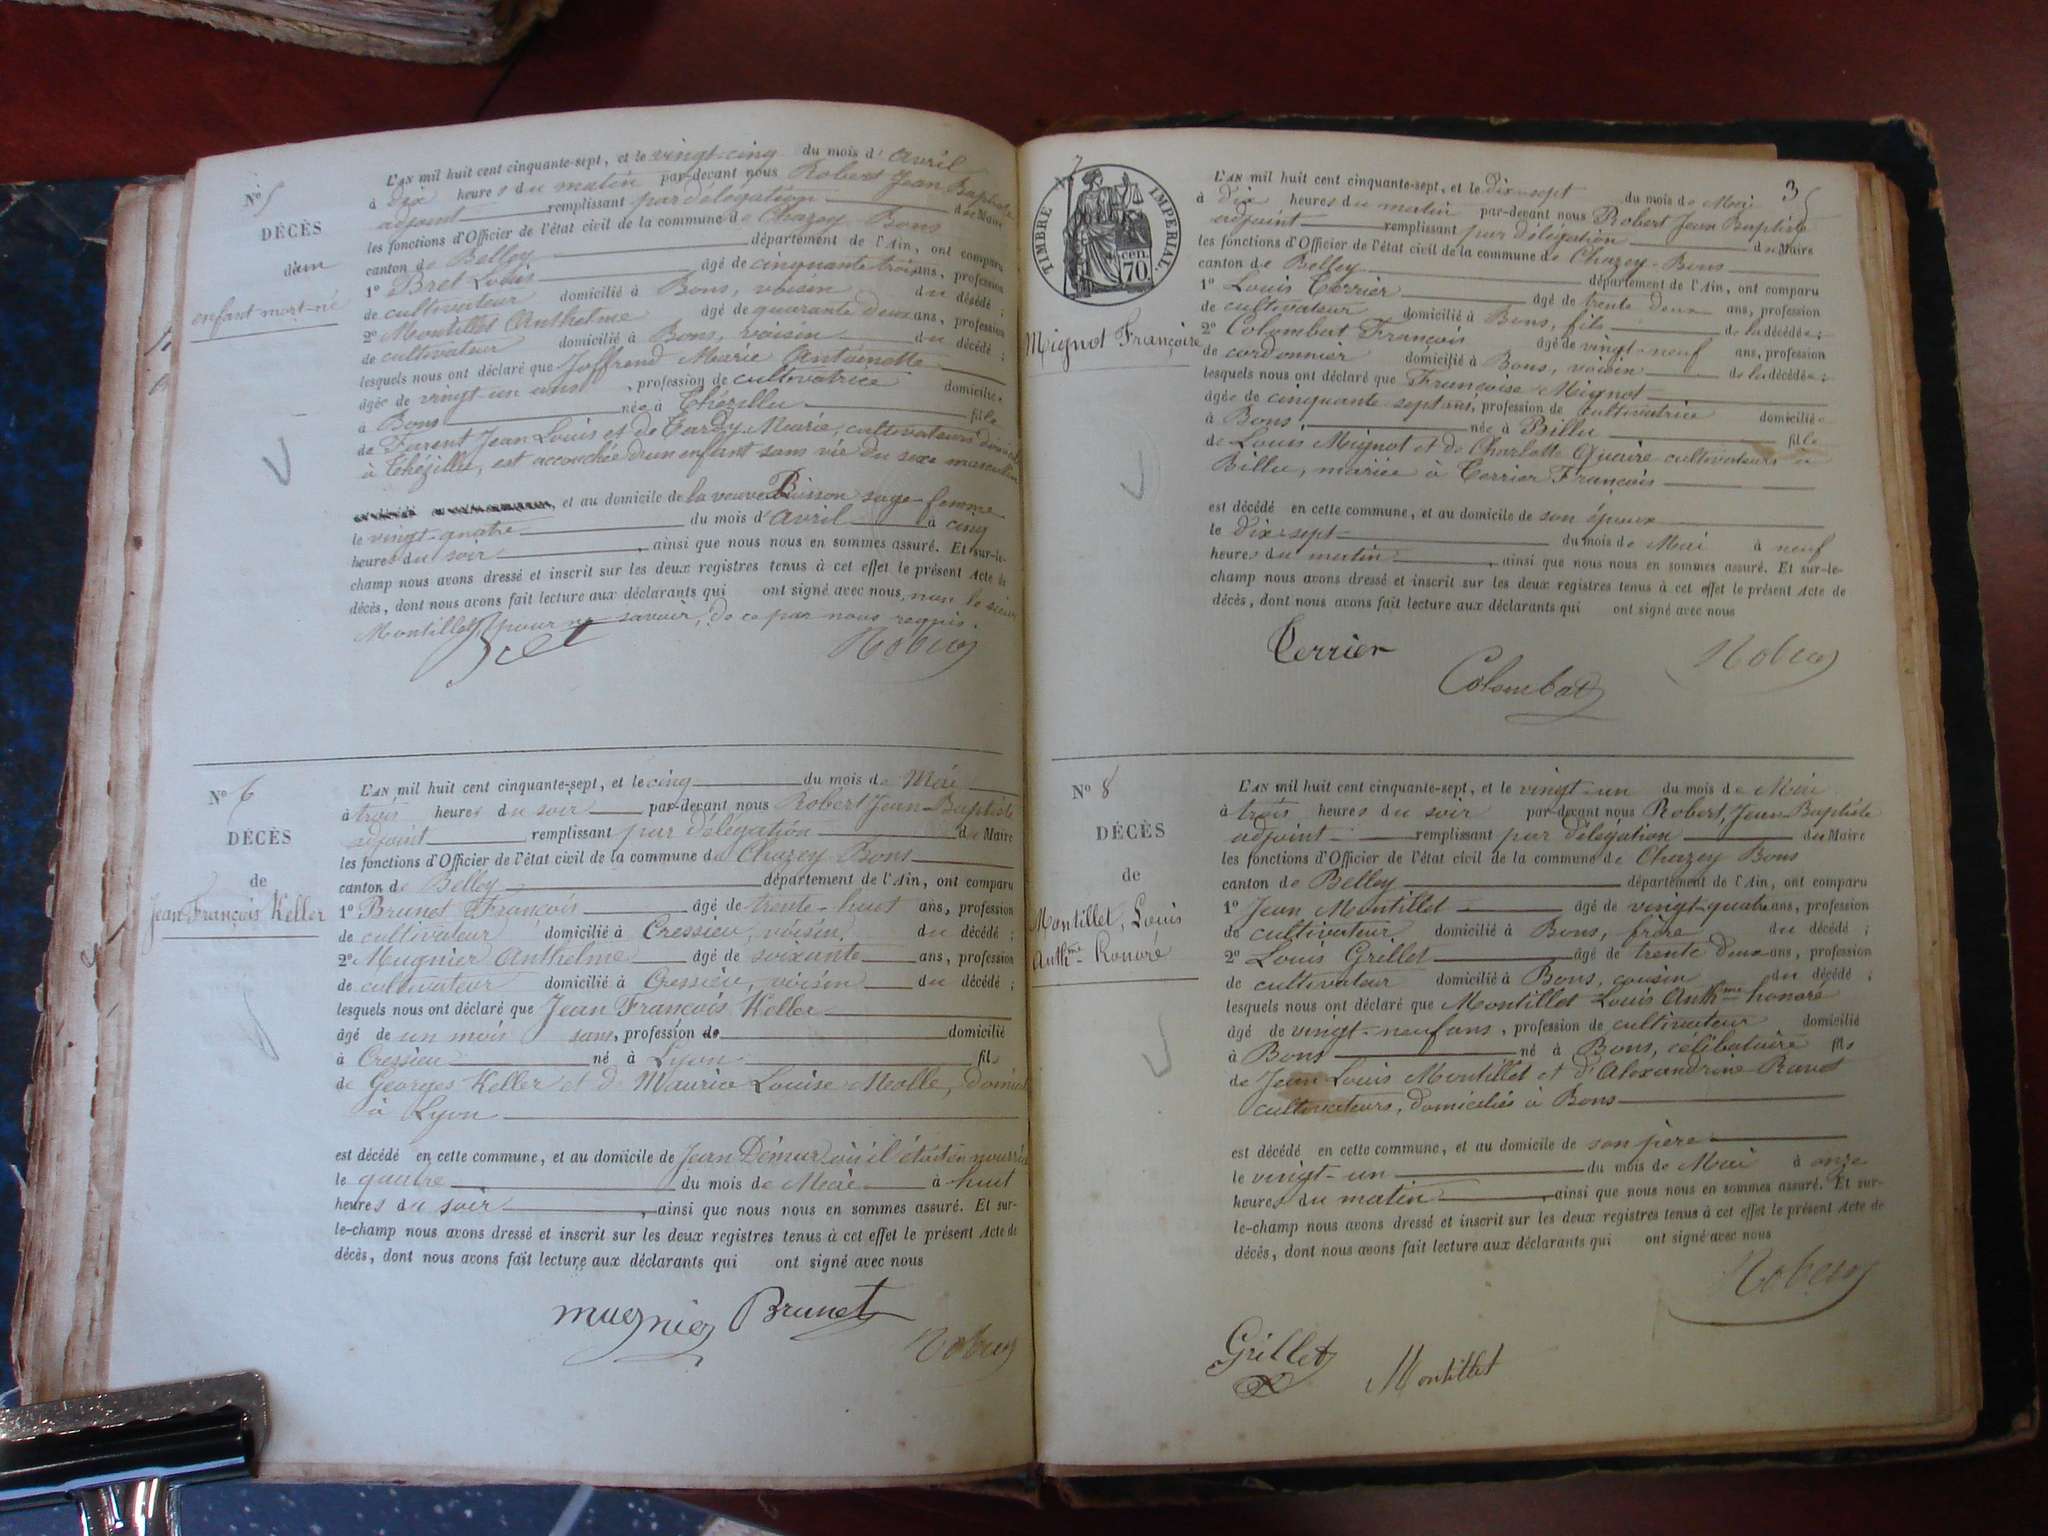 N° 5
DÉCÈS
d'un
enfant mort-né
L'AN mil huit cent cinquante-sept, et le vingt-cinq du mois d'Avril
à dix heures du matin par-devant nous Robert Jean Baptiste
adjoint remplissant par délégation du Maire
les fonctions d'Officier de l'état civil de la commune de Chazey-Bons
canton de Belley département de l'Ain, ont comparu
1° Bret Louis âgé de cinquante trois ans, profession
de cultivateur domicilié à Bons, voisin du décédé ;
2° Montillet Anthelme âgé de quarante deux ans, profession
de cultivateur domicilié à Bons, voisin du décédé ;
lesquels nous ont déclaré que Joffrend Marie Antoinette
âgée de vingt-un ans, profession de cultivatrice domiciliée
à Bons née à Thézillu fille
de Farent Jean Louis et de Tardy Marie, cultivateurs
à Thézillu, est accouchée d'un enfant sans vie du sexe masculin
, et au domicile de la veuve Buisson sage-femme
le vingt-quatre du mois d'Avril à cinq
heures du soir, ainsi que nous nous en sommes assuré. Et sur-le-
champ nous avons dressé et inscrit sur les deux registres tenus à cet effet le présent Acte de
décès, dont nous avons fait lecture aux déclarants qui ont signé avec nous, non le sieur
Montillet pour ne savoir, de ce par nous requis.
Bret Robert
N° 6
DÉCÈS
de
Jean François Keller
L'AN mil huit cent cinquante-sept, et le cinq du mois de Mai
à trois heures du soir par-devant nous Robert Jean-Baptiste
adjoint remplissant par délégation du Maire
les fonctions d'Officier de l'état civil de la commune de Chazey-Bons
canton de Belley département de l'Ain, ont comparu
1° Brunet François âgé de trente-huit ans, profession
de cultivateur domicilié à Cressieu, voisin du décédé ;
2° Mugnier Anthelme âgé de soixante ans, profession
de cultivateur domicilié à Cressieu, voisin du décédé ;
lesquels nous ont déclaré que Jean François Keller
âgé de un mois sans, profession de domicilié
à Cressieu né à Lyon fils
de Georges Keller et de Maurice Louise Molle,
à Lyon
est décédé en cette commune, et au domicile de Jean Démur où il était en nourrice
le quatre du mois de Mai à huit
heures du soir, ainsi que nous nous en sommes assuré. Et sur-
le-champ nous avons dressé et inscrit sur les deux registres tenus à cet effet le présent Acte de
décès, dont nous avons fait lecture aux déclarants qui ont signé avec nous
mugnier Brunet
Robert
7
3
TIMBRE IMPÉRIAL.
70 cen.
Mignot Françoise
L'AN mil huit cent cinquante-sept, et le dix-sept du mois de Mai
à dix heures du matin par-devant nous Robert Jean Baptiste
adjoint remplissant par délégation du Maire
les fonctions d'Officier de l'état civil de la commune de Chazey-Bons
canton de Belley département de l'Ain, ont comparu
1° Louis Terrier âgé de trente deux ans, profession
de cultivateur domicilié à Bons, fils de la décédée ;
2° Colombat François âgé de vingt-neuf ans, profession
de cordonnier domicilié à Bons, voisin de la décédée ;
lesquels nous ont déclaré que Françoise Mignot
âgée de cinquante-sept ans, profession de cultivatrice domiciliée
à Bons née à Billu fille
de Louis Mignot et de Charlotte Quaire cultivateurs à
Billu, mariée à Terrier François
est décédé en cette commune, et au domicile de son époux
le dix-sept du mois de Mai à neuf
heures du matin, ainsi que nous nous en sommes assuré. Et sur-le-
champ nous avons dressé et inscrit sur les deux registres tenus à cet effet le présent Acte de
décès, dont nous avons fait lecture aux déclarants qui ont signé avec nous
Terrier Robert
Colombat
N° 8
DÉCÈS
de
Montillet, Louis
Anth.me Honoré
L'AN mil huit cent cinquante-sept, et le vingt-un du mois de Mai
à trois heures du soir par-devant nous Robert, Jean-Baptiste
adjoint remplissant par délégation du Maire
les fonctions d'Officier de l'état civil de la commune de Chazey Bons
canton de Belley département de l'Ain, ont comparu
1° Jean Montillet âgé de vingt-quatre ans, profession
de cultivateur domicilié à Bons, frère du décédé ;
2° Louis Grillet âgé de trente deux ans, profession
de cultivateur domicilié à Bons, cousin du décédé ;
lesquels nous ont déclaré que Montillet Louis Anth.me honoré
âgé de vingt-neuf ans, profession de cultivateur domicilié
à Bons né à Bons, célibataire fils
de Jean Louis Montillet et d'Alexandrine Ravet
cultivateurs, domiciliés à Bons
est décédé en cette commune, et au domicile de son père
le vingt-un du mois de Mai à onze
heures du matin, ainsi que nous nous en sommes assuré. Et sur-
le-champ nous avons dressé et inscrit sur les deux registres tenus à cet effet le présent Acte de
décès, dont nous avons fait lecture aux déclarants qui ont signé avec nous
Robert
Grillet Montillet